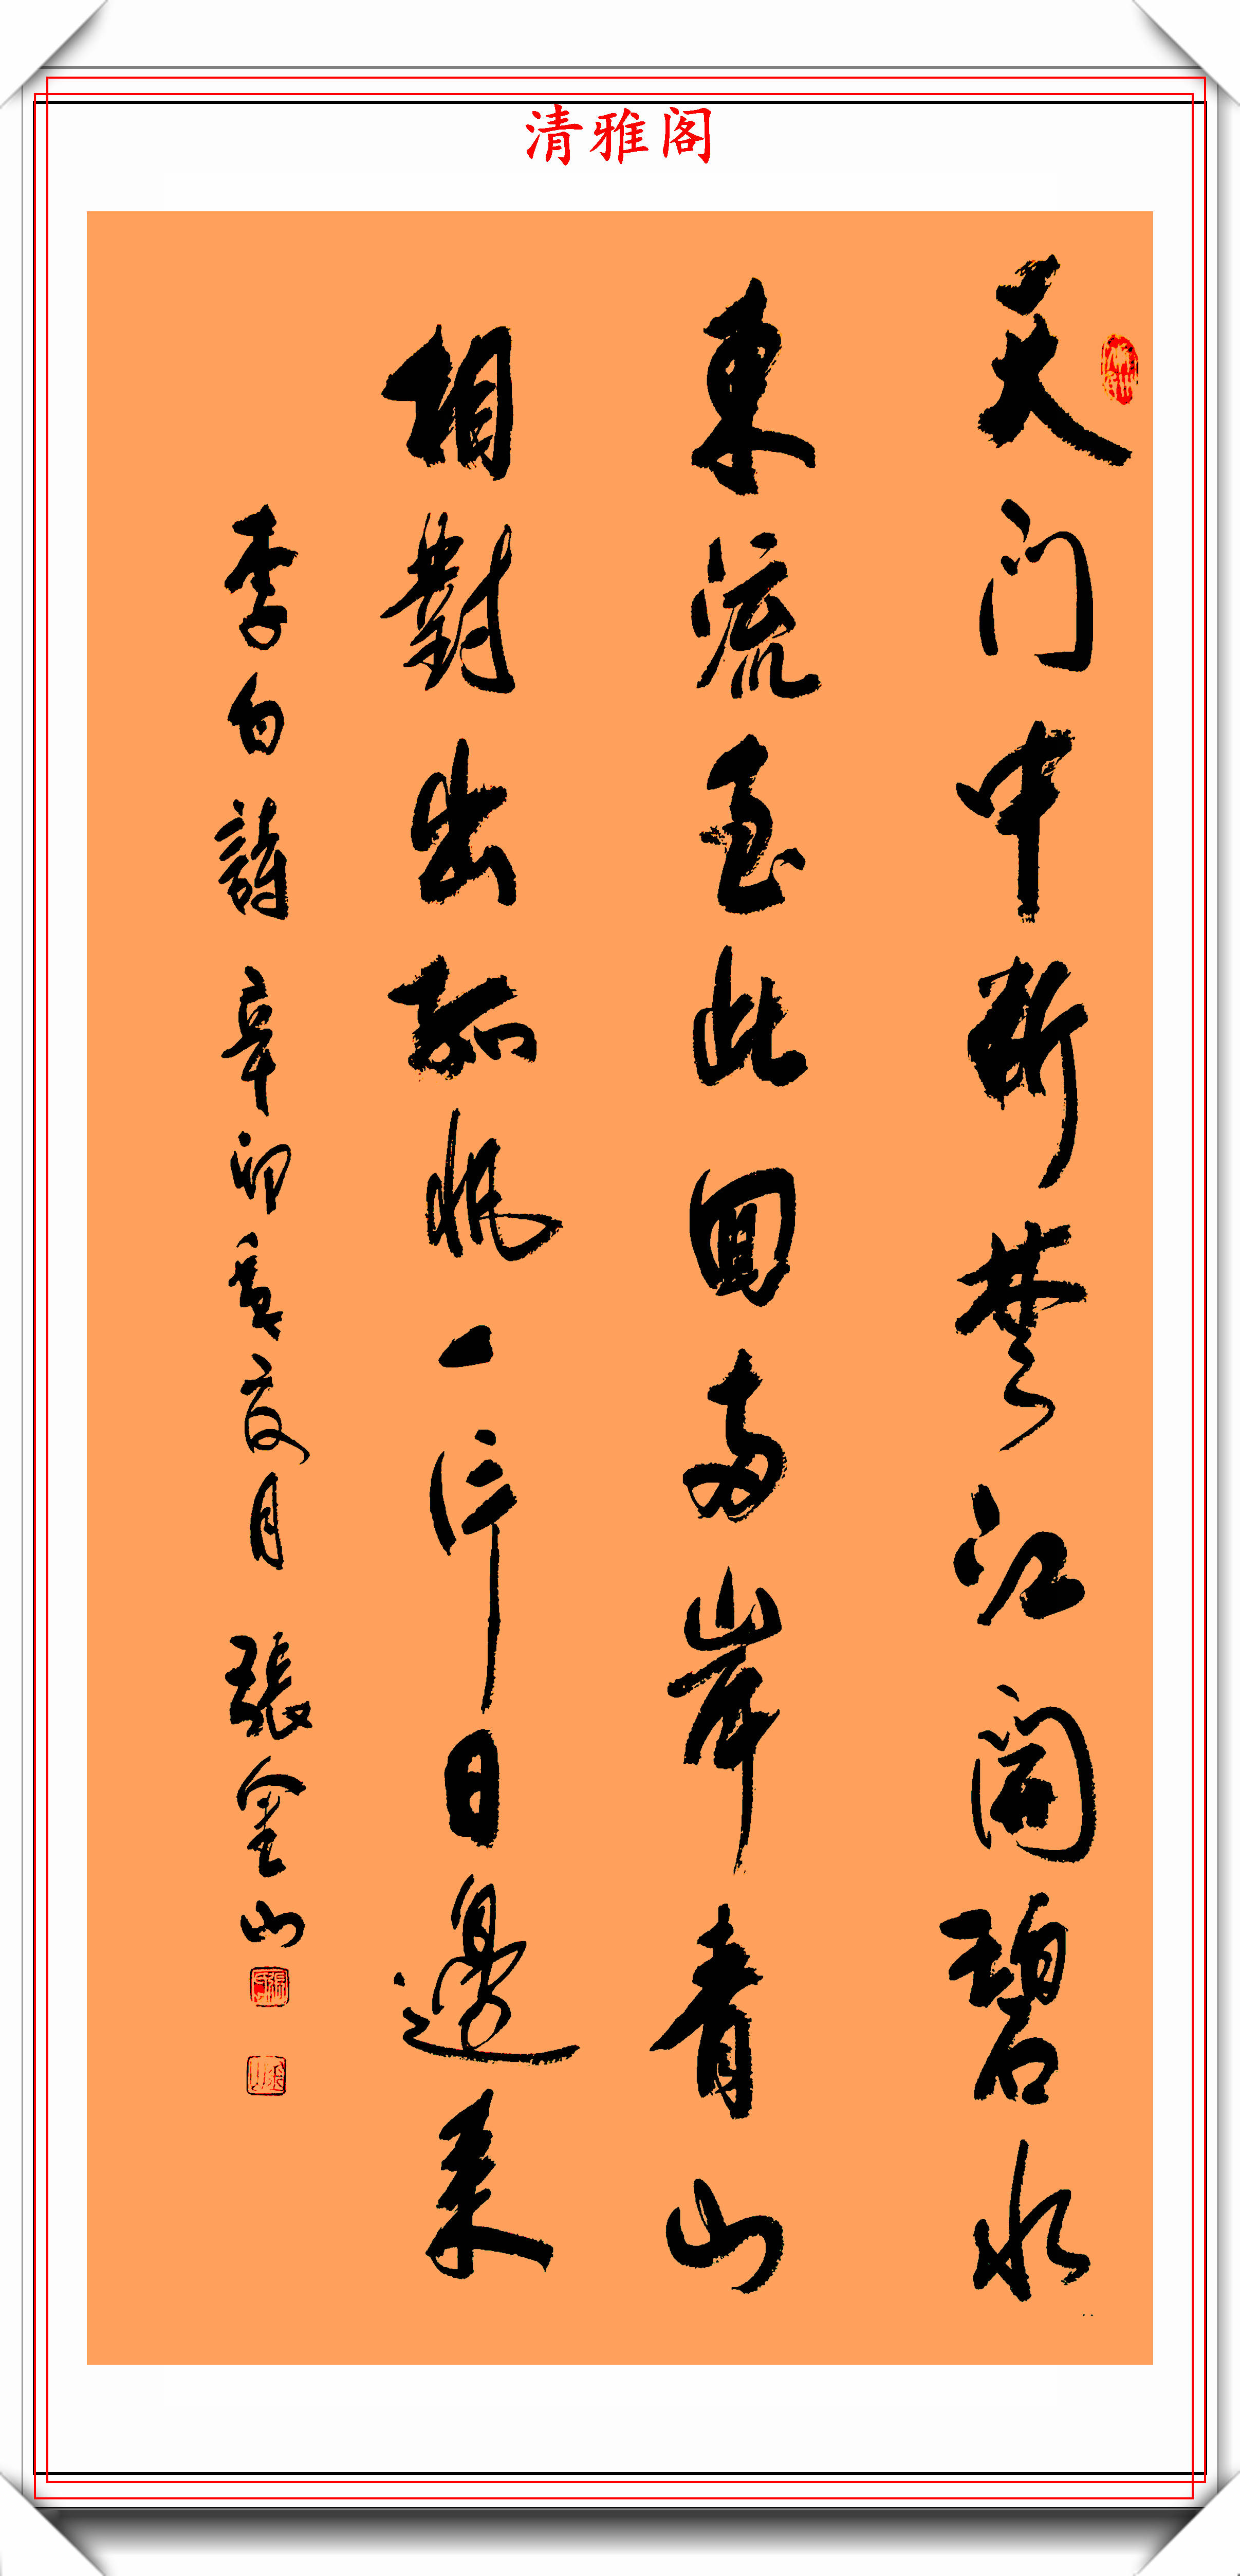 清雅阁
天门中断楚江開碧水
東流至此回两岸青山
相對出孤帆一片日邊来
李白詩 辛卯夏月 張金山